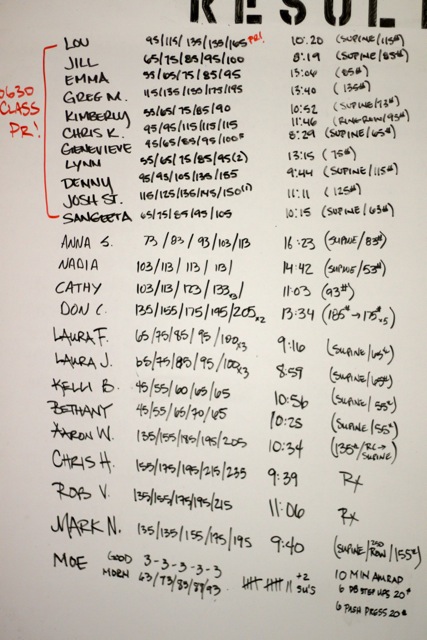 RESUL
0630 CLASS PR!
LOU 95/115/135/155/165 PR! 10:20 (SUPINE/115#)
JILL 65/75/85/95/100 8:19 (SUPINE/85#)
EMMA 55/65/75/85/95 13:06 (85#)
GREG M. 115/135/150/175/195 13:40 (135#)
KIMBERLY 55/65/75/85/90 10:52 (SUPINE/73#)
CHRIS K. 95/95/115/115/115 11:46 (RING-ROW/95#)
GENEVIEVE 45/65/85/95/100 8:29 (SUPINE/65#)
LYNN 55/65/75/85/95(2) 13:15 (75#)
DENNY 95/95/105/135/185 9:44 (SUPINE/115#)
JOSH ST. 115/125/136/145/150(1) 11:11 (125#)
SANGEETA 65/75/85/95/105 10:15 (SUPINE/63#)
ANNA S. 73/83/93/103/113 16:23 (SUPINE/83#)
NADIA 103/113/113/113/ 14:42 (SUPINE/53#)
CATHY 103/113/123/133x3/ 11:03 (93#)
DON C. 135/155/175/195/205x2 13:34 (185#→175#x5)
LAURA F. 65/75/85/95/100x3 9:16 (SUPINE/65#)
LAURA J. 65/75/85/95/100x3 8:59 (SUPINE/65#)
KELLI B. 45/55/60/65/65 10:56 (SUPINE/55#)
BETHANY 45/55/65/70/65 10:25 (SUPINE/55#)
AARON W. 135/155/185/195/205 10:34 (135#/RC→SUPINE)
CHRIS H. 155/175/195/215/235 9:39 RX
ROB V. 135/155/175/195/215 11:06 RX
MARK N. 135/135/155/175/195 9:40 (SUPINE/250 ROW/155#)
MOE GOOD 3-3-3-3-3 +2 10 MIN AMRAP
MORN 63/73/83/88/93 SU'S 6 DB STEP UPS 20#
6 PUSH PRESS 20#